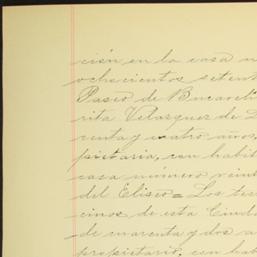 ción en la casa n
ochocientos setent
Paseo de Bucareli
rita Velazquez de L
renta y cuatro años,
pietaria, con habit
casa número veint
del Eliseo = Los tes
cinos de esta Ciud
de cuarenta y dos a
propietario, con hab